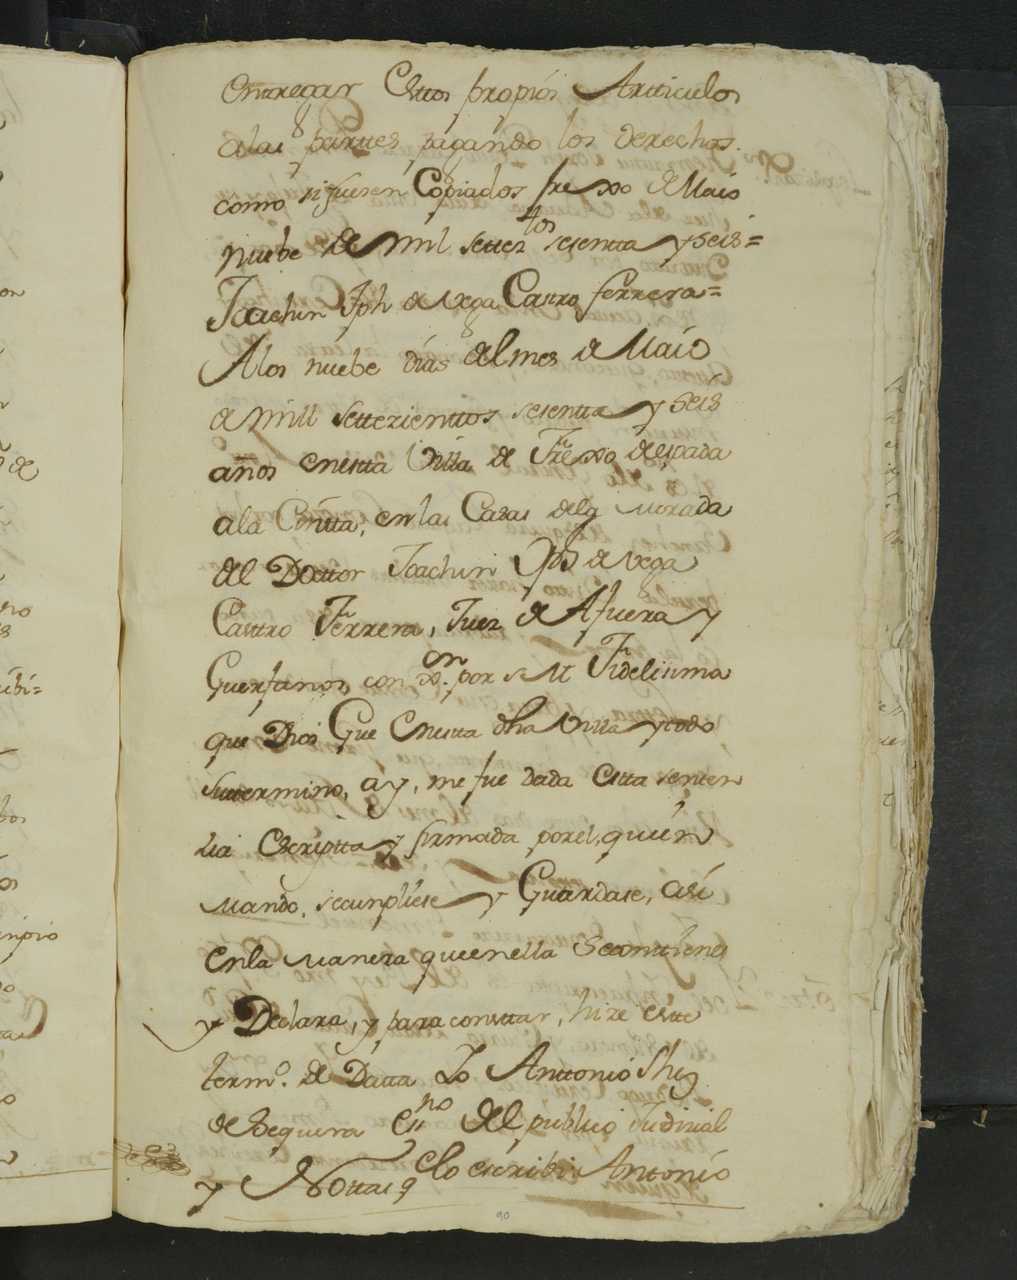 entregar Esttos propios Artticulos
alas parttes pagando los derechos
como si fuesen Copiados fre xo de Maio
nuebe de mil settez.tos sesentta y seis=
Joachin Jph de Vega Casttro ferrera=
Alos nuebe dias del mes de Maio
de mill settezienttos sesentta y seis
años enestta Villa de Frexo de espada
ala Cintta, en las Casas de morada
del Docttor Joachin Jph de Vega
Casttro Ferrera, Juez de Afuera y
Guerfanos, con por S M Fidelisima
que Dios Gue Enestta dha Villa y todo
suttermino, ay, me fue dada estta senten
zia Escriptta y firmada porel, quien
mando, secunpliese y Guardase, asi
enla manera queenella Seconttiene
y Declara, y para consttar, hize estte
term.o de Datta Yo Anttonio
de Sequera Es.no del publico Judizial
y Nottas q lo escribi Anttonio
90